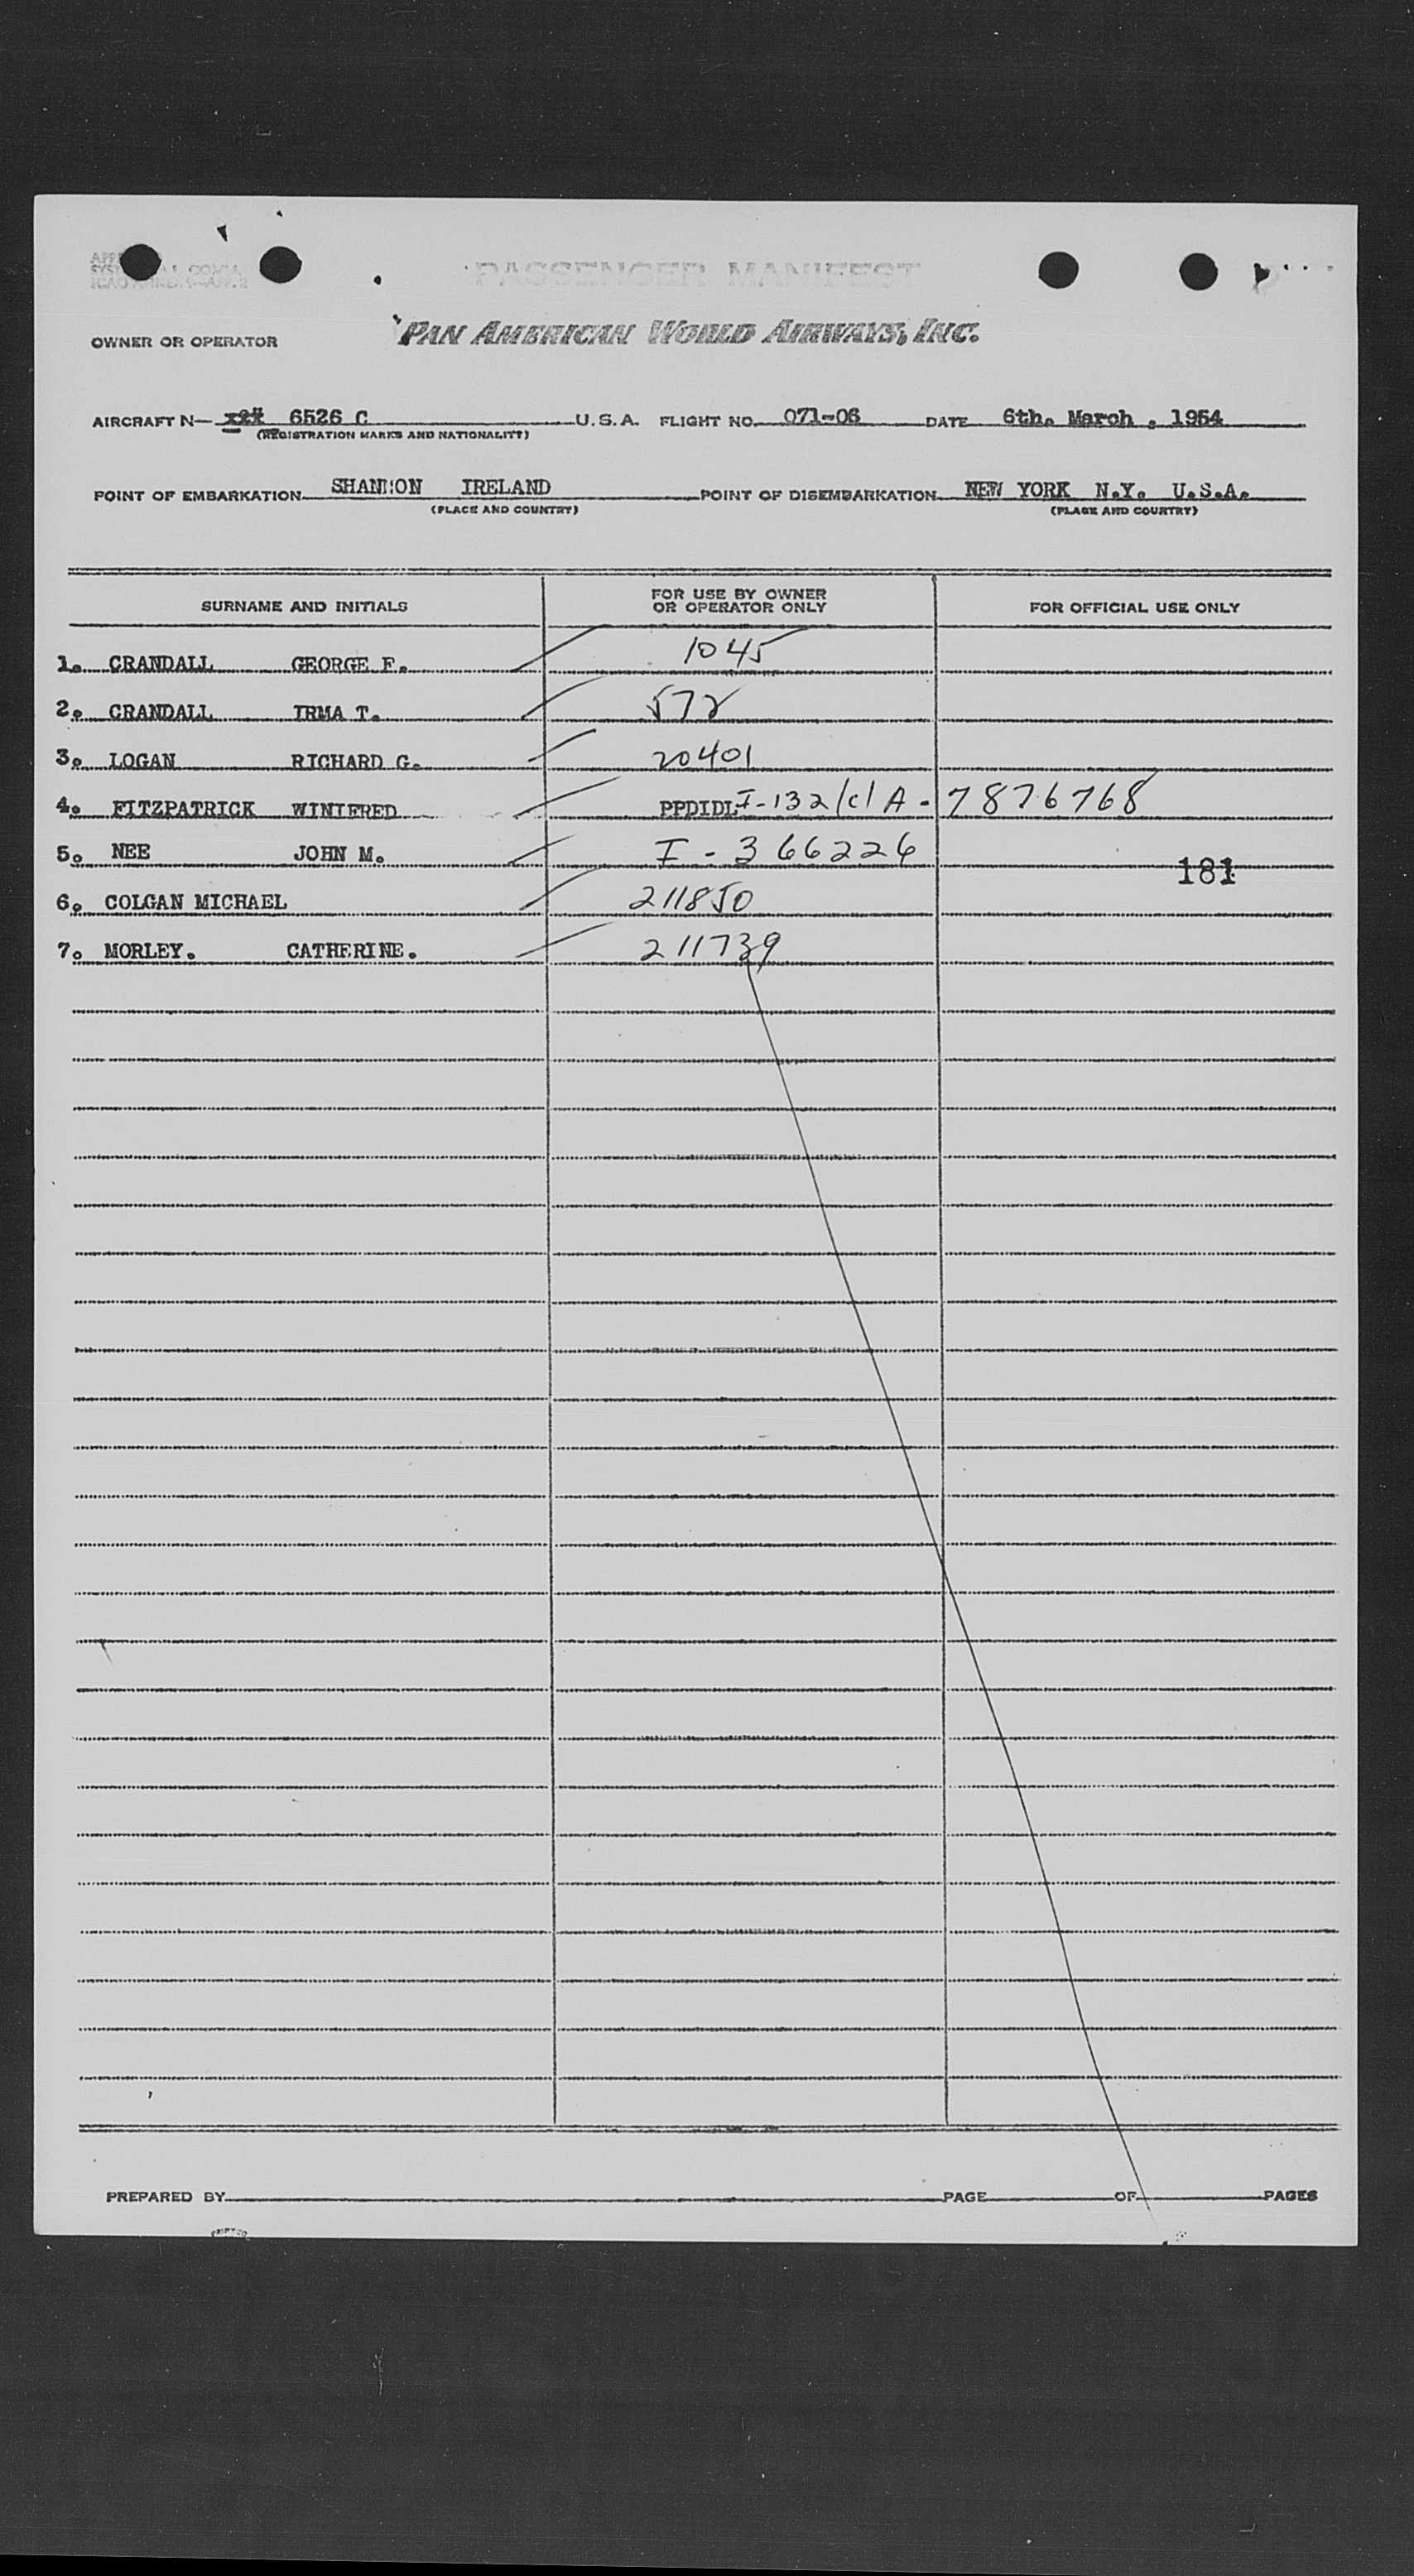 PASSENGER MANIFEST
OWNER OR OPERATOR PAN AMERICAN WORLD AIRWAYS, INC.
AIRCRAFT N— 6526 C U.S.A. FLIGHT NO. 071-06 DATE 6th. March , 1954
(REGISTRATION MARKS AND NATIONALITY)
POINT OF EMBARKATION SHANNON IRELAND POINT OF DISEMBARKATION NEW YORK N.Y. U.S.A.
(PLACE AND COUNTRY) (PLACE AND COUNTRY)
SURNAME AND INITIALS FOR USE BY OWNER OR OPERATOR ONLY FOR OFFICIAL USE ONLY
1. CRANDALL GEORGE F. 1045
2. CRANDALL IRMA T. 572
3. LOGAN RICHARD G. 20401
4. FITZPATRICK WINIFRED PPDIDL I-132/c/ A-7876768
5. NEE JOHN M. I-366226
181
6. COLGAN MICHAEL 211850
7. MORLEY. CATHERINE. 211739
PREPARED BY PAGE OF PAGES